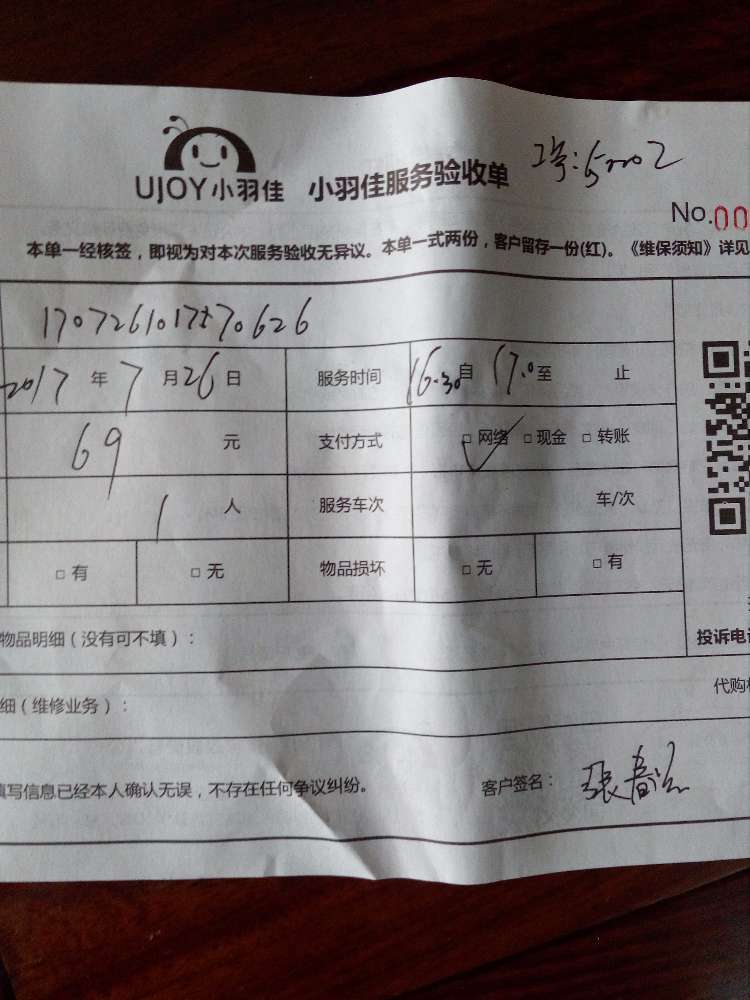 UJOY小羽佳 小羽佳服务验收单 工号:5002
No.00
本单一经核签，即视为对本次服务验收无异议。本单一式两份，客户留存一份(红)。《维保须知》详见
2017年7月26日 服务时间 16.30自17.0至 止
69 元 支付方式 □网络 □现金 □转账
1人 服务车次 车/次
□有 □无 物品损坏 □无 □有
物品明细（没有可不填）：
投诉电
细（维修业务）：
代购
填写信息已经本人确认无误，不存在任何争议纠纷。 客户签名：